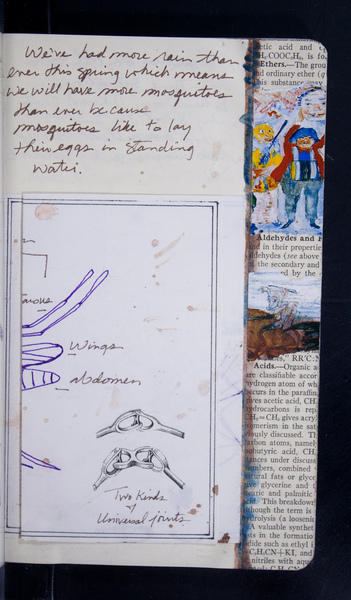 We've had more rain than
ever this spring which means
we will have more mosquitoes
than ever because
mosquitoes like to lay
their eggs in standing
water.
Wings
abdomen
Two Kinds
of
Universal joints
etic acid and
H₂COOC₂H₅, is fo
Ethers.—The grou
nd ordinary ether (
his substance may
Aldehydes and
and in their propertie
ldehydes (see above
the secondary and
ed by the
RR'C:
Acids.—Organic a
are classifiable accor
hydrogen atom of wh
occurs in the paraffin
ives acetic acid, CH
hydrocarbons is rep
CH₂=CH gives acryl
omerism in the sat
ously discussed. Th
arbon atoms, namely
obutyric acid, CH
tances under discus
mbers, combined
atural fats or glyc
ive glycerine and t
earic and palmitic
acid. This breakdown
though the term is
hydrolysis (a loosenin
A valuable synthet
sts in the formatio
dide such as ethyl i
C₂H₅CN+KI, and
nitriles with aqu